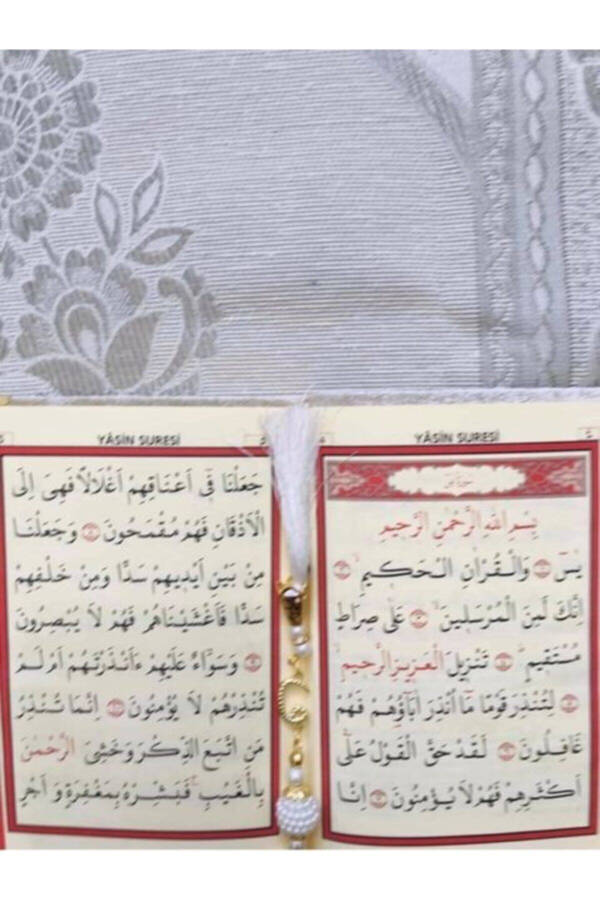 YÂSİN SURESİ
سورة يس
بِسْمِ اللّٰهِ الرَّحْمٰنِ الرَّحِيمِ
يٰسٓ ﴿١﴾ وَالْقُرْاٰنِ الْحَكِيمِۙ ﴿٢﴾
اِنَّكَ لَمِنَ الْمُرْسَلِينَۙ ﴿٣﴾ عَلٰى صِرَاطٍ
مُسْتَقِيمٍۜ ﴿٤﴾ تَنْزِيلَ الْعَزِيزِ الرَّحِيمِۙ
﴿٥﴾ لِتُنْذِرَ قَوْمًا مَٓا اُنْذِرَ اٰبَٓاؤُ۬هُمْ فَهُمْ
غَافِلُونَ ﴿٦﴾ لَقَدْ حَقَّ الْقَوْلُ عَلٰٓى
اَكْثَرِهِمْ فَهُمْ لَا يُؤْمِنُونَ ﴿٧﴾ اِنَّا
YÂSİN SURESİ
جَعَلْنَا فِٓي اَعْنَاقِهِمْ اَغْلَالًا فَهِيَ اِلَى
الْاَذْقَانِ فَهُمْ مُقْمَحُونَ ﴿٨﴾ وَجَعَلْنَا
مِنْ بَيْنِ اَيْدِيهِمْ سَدًّا وَمِنْ خَلْفِهِمْ
سَدًّا فَاَغْشَيْنَاهُمْ فَهُمْ لَا يُبْصِرُونَ
﴿٩﴾ وَسَوَٓاءٌ عَلَيْهِمْ ءَاَنْذَرْتَهُمْ اَمْ لَمْ
تُنْذِرْهُمْ لَا يُؤْمِنُونَ ﴿١٠﴾ اِنَّمَا تُنْذِرُ
مَنِ اتَّبَعَ الذِّكْرَ وَخَشِيَ الرَّحْمٰنَ
بِالْغَيْبِۚ فَبَشِّرْهُ بِمَغْفِرَةٍ وَاَجْرٍ